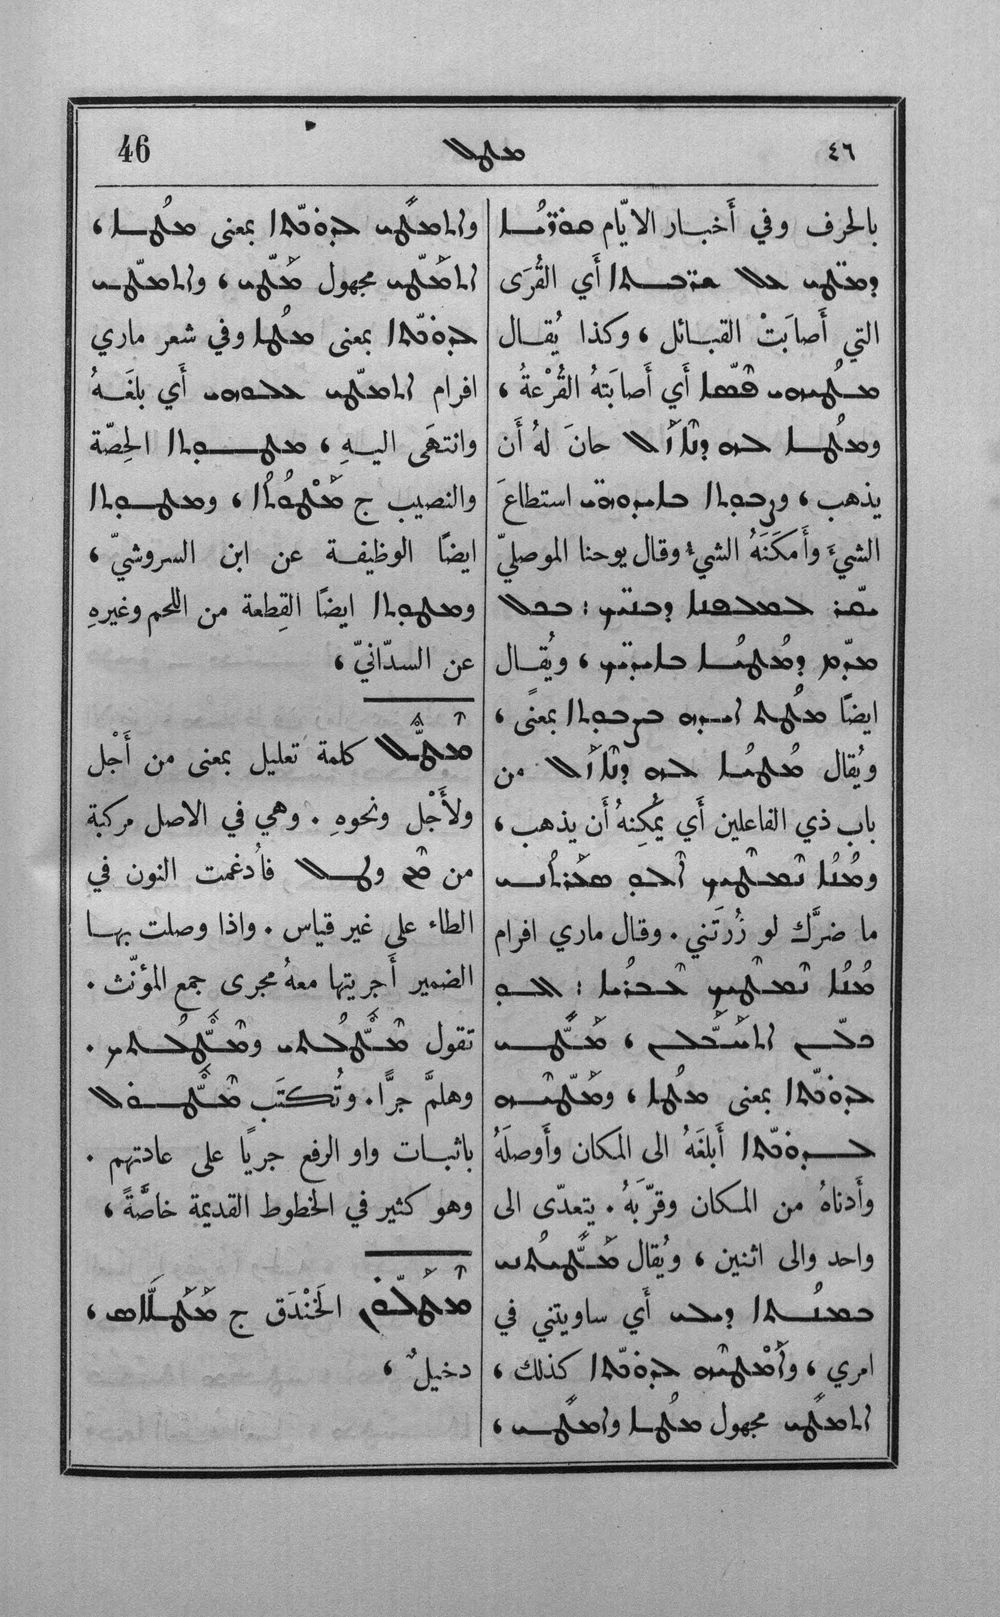 46
ܡܛܠ
٤٦
بالحرف وفي أَخبار الايّام ܩܘܪ̈ܝܐ
ܕܡܛܝ ܥܠ ܫܪ̈ܒܬܐ أَي القُرَى
التي أَصابَتْ القبائل ، وكذا يُقال
ܡܛܝܗܝ ܦܣܐ أَي أَصابَتهُ القُرْعةُ ،
ܘܡܛܐ ܠܗ ܕܢܐܙܠ حانَ لهُ أَن
يذهب ، ܘܨܒܘܬܐ ܒܐܝܕܘܗܝ استطاعَ
الشئَ وأَمكَنَهُ الشئُ وقال يوحنا الموصليّ
ܕܡܛܝܐ ܒܐܝܕܝܟ ، ويُقال
ايضًا ܡܛܬ ܐܝܕܗ ܒܨܒܘܬܐ بمعنًى ،
ويُقال ܡܛܝܐ ܠܗ ܕܢܐܙܠ من
باب ذي الفاعلين أَي يُمْكِنهُ أَن يذهب ،
ܘܡܢܐ ܢܡܛܝܟ ܐܠܘ ܣܥܪܬܢܝ
ما ضرَّك لو زُرتَني . وقال ماري افرام
ܡܢܐ ܢܡܛܝܟ ܥܒܪܝܐ : ܐܠܘ
ܡܛܝ
ܠܕܘܟܬܐ بمعنى ܡܛܐ ، ܘܡܛܝܗ
ܠܕܘܟܬܐ أَبلغَهُ الى المكان وأَوصلَهُ
وأَدناهُ من المكان وقرّبَهُ . يتعدّى الى
واحد والى اثنين ، ويُقال ܡܛܝܬܢܝ
ܒܡܢܬܐ ܕܝܠܝ أَي ساويتني في
امري ، ܘܐܡܛܝܗ ܠܕܘܟܬܐ كذلك ،
ܐܬܡܛܝ مجهول ܡܛܐ ܘܐܡܛܝ ،
ܘܐܬܡܛܝ ܠܕܘܟܬܐ بمعنى ܡܛܐ ،
ܐܬܡܛܝ مجهول ܡܛܝ ، ܘܐܬܡܛܝ
ܠܕܘܟܬܐ بمعنى ܡܛܐ وفي شعر ماري
افرام ܐܬܡܛܝ ܥܠܘܗܝ أَي بلغَهُ
وانتهَى اليهِ ، ܡܛܘܬܐ الحِصّة
والنصيب ج ܡܛܘܬܐ ، ܘܡܛܘܬܐ
ايضًا الوظيفة عن ابن السروشيّ ،
ܘܡܛܘܬܐ ايضًا القِطعة من اللحم وغيرهِ
عن السدّانيّ ،
ܡܛܠ كلمة تعليل بمعنى من أَجْل
ولأَجْل ونحوهِ . وهي في الاصل مركبة
من ܡܢ ܘܛܠ فأُدغمت النون في
الطاء على غير قياس . واذا وصلت بها
الضمير أَجريتها معهُ مجرى جمع المؤنّث .
تقول ܡܛܠܬܝ ܘܡܛܠܬܟ .
وهلمَّ جرًّا . وتُكتَب ܡܛܘܠ
باثبات واو الرفع جريًا على عادتهم .
وهو كثير في الخطوط القديمة خاصَّةً ،
ܡܛܠܘܢ الخَنْدَق ج ܡܛܠܐܣ ،
دخيلٌ ،